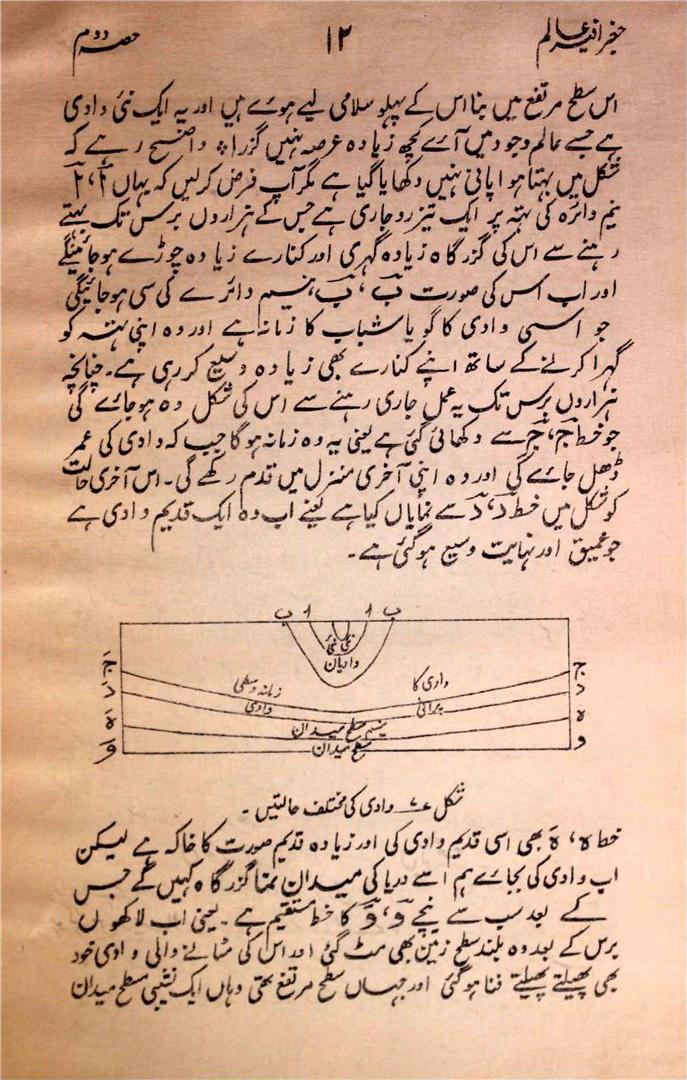 جغرافیہ عالم ۱۲ حصہ دوم
اس سطح مرتفع میں بنا اس کے پہلو سلامی لیے ہوے ہیں اور یہ ایک نئی وادی
ہے جسے عالم وجود میں آے کچھ زیادہ عرصہ نہیں گزرا * واضح رہے کہ
شکل میں بہتا ہوا پانی نہیں دکھایا گیا ہے مگر آپ فرض کرلیں کہ یہاں
نیم دائرہ کی تہ پر ایک تیز رو جاری ہے جس کے ہزاروں برس تک بہتے
رہنے سے اس کی گزرگاہ زیادہ گہری اور کنارے زیادہ چوڑے ہوجائینگے
اور اب اس کی صورت بَ، بَ، نیم دائرے کی سی ہوجائیگی
جو اسی وادی کا گویا شباب کا زمانہ ہے اور وہ اپنی تہ کو
گہرا کرنے کے ساتھ اپنے کنارے بھی زیادہ وسیع کررہی ہے۔ چنانچہ
ہزاروں برس تک یہ عمل جاری رہنے سے اس کی شکل وہ ہوجاے گی
جو خط جَ، جَ سے دکھائی گئی ہے یعنی یہ وہ زمانہ ہوگا جب کہ وادی کی عمر
ڈھل جاے گی اور وہ اپنی آخری منزل میں قدم رکھے گی۔ اس آخری حالت
کو شکل میں خط دَ، دَ سے نمایاں کیا ہے یعنے اب وہ ایک قدیم وادی ہے
جو عمیق اور نہایت وسیع ہوگئی ہے۔
ب ا ا ب
نئی نئی
وادیان
ج جَ
وادی کا زمانہ وسطی
د دَ
پرانی وادی
ہ ہَ
نیم سطح میدان
و وَ
سطح میدان
شکل ۷ وادی کی مختلف حالتیں۔
خط ہ، ہَ بھی اسی قدیم وادی کی اور زیادہ قدیم صورت کا خاکہ ہے لیکن
اب وادی کی بجاے ہم اسے دریا کی میدان نما گزرگاہ کہیں گے جس
کے بعد سب سے نیچے وَ، وَ کا خط مستقیم ہے۔ یعنی اب لاکھوں
برس کے بعد وہ بلند سطح زمین بھی مٹ گئی اور اس کی مٹانے والی وادی خود
بھی پھیلتے پھیلتے فنا ہوگئی اور جہاں سطح مرتفع تھی وہاں ایک نشیبی سطح میدان